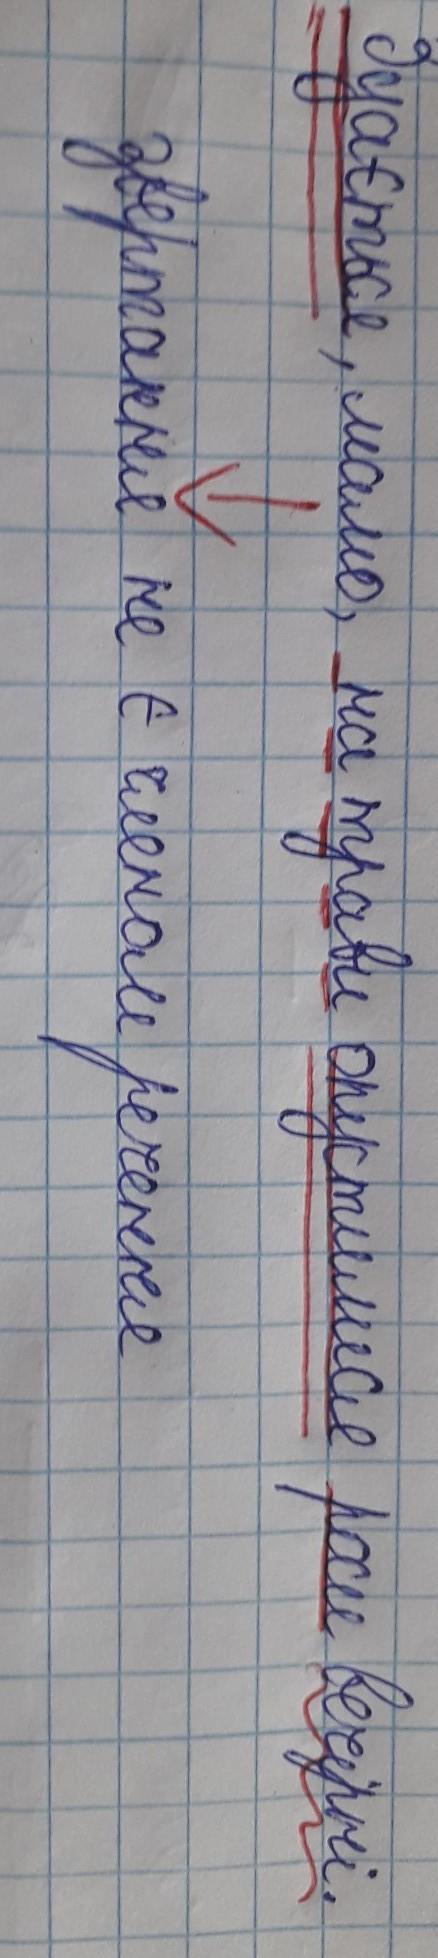 Здається, мамо, на трави опустилися роси вечірні.
звертання не є членом речення